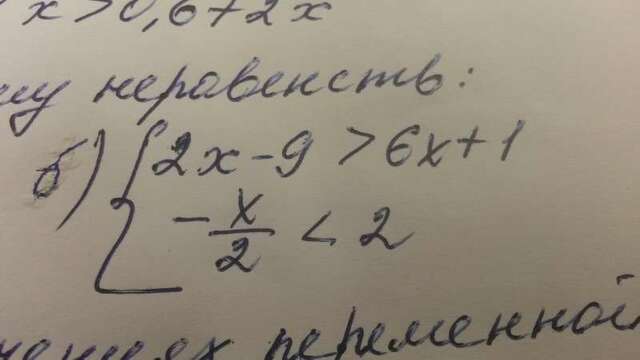 x > 0,6 + 2x
неравенств:
б) { 2x - 9 > 6x + 1
- x/2 < 2
переменной